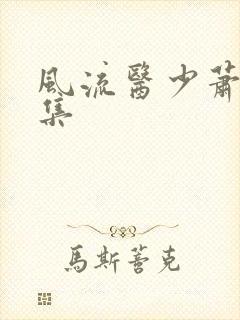 風流醫少蕭
集
馬斯善克